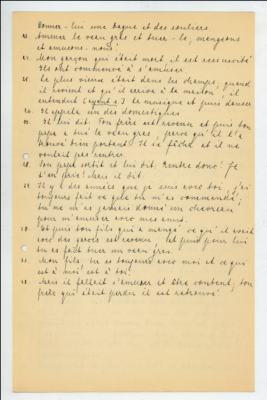 Donner-lui une bague et des souliers
23. Amener le veau gras et tuer-le; mangeons
et amusons-nous!
24. Mon garçon qui était mort il est ressuscité
Ils ont commencé à s'amuser.
25. Le plus vieux était dans les champs, quand
il revient et qu'il arrive à la maison, il
entendut la musique et puis danser
26. Il appelle un des domestiques
27. Il lui dit: Ton frère est revenu et puis ton
papa a tué le veau gras, parce qu'il l'a
trouvé bien portant. Il se fâche et il ne
voulait pas rentrer.
28. Son papa sortit et lui dit: Rentre donc! Je
t'en prie! Mais il dit.
29. Il y a des années que je suis avec toi, j'ai
toujours fait ce que tu m'as commandé;
tu ne m'as jamais donné un chevreau
pour m'amuser avec mes amis.
30. Et puis ton fils qui a mangé ce qu'il avait
avec des garces est revenu, et puis pour lui
tu as fait tuer un veau gras.
31. Mon fils, tu es toujours avec moi et ce qui
est à moi est à toi.
32. Mais il fallait s'amuser et être content; ton
frère qui était perdu il est retrouvé!